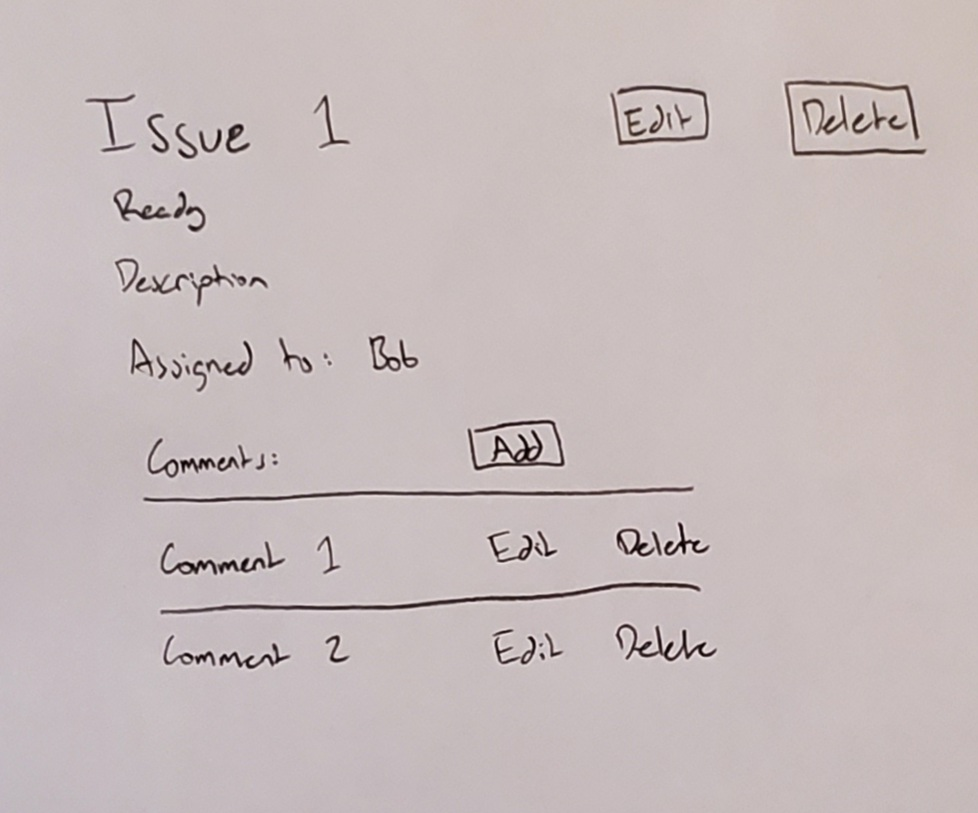 Issue 1 Edit Delete
Ready
Description
Assigned to: Bob
Comments: Add
Comment 1 Edit Delete
Comment 2 Edit Delete